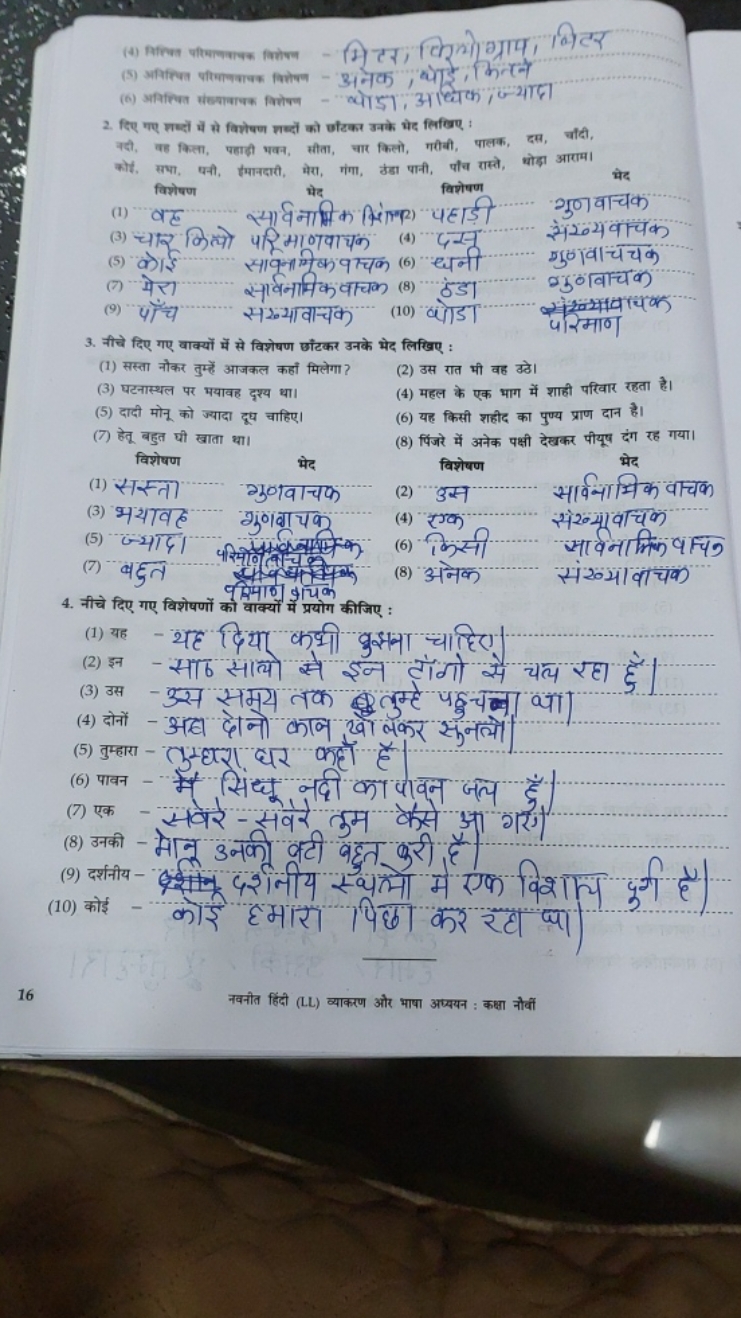 (4) निश्चित परिमाणवाचक विशेषण – मिटर, किलोग्राम, लिटर
(5) अनिश्चित परिमाणवाचक विशेषण – अनेक, थोडे, कितने
(6) अनिश्चित संख्यावाचक विशेषण – थोडा, अधिक, ज्यादा
2. दिए गए शब्दों में से विशेषण शब्दों को छाँटकर उनके भेद लिखिए :
नदी, वह किला, पहाड़ी भवन, सीता, चार किलो, गरीबी, पालक, दस, चाँदी,
कोई, सभा, धनी, ईमानदारी, मेरा, गंगा, ठंडा पानी, पाँच रास्ते, थोड़ा आराम।
विशेषण भेद विशेषण भेद
(1) वह सार्वनामिक (2) पहाडी गुणवाचक
(3) चार किलो परिमाणवाचक (4) दस संख्यवाचक
(5) कोई सार्वनामिक वाचक (6) धनी गुणवाचचक
(7) मेरा सार्वनामिक वाचक (8) ठंडा गुणवाचक
(9) पाँच संख्यावाचक (10) थोडा परिमाण
3. नीचे दिए गए वाक्यों में से विशेषण छाँटकर उनके भेद लिखिए :
(1) सस्ता नौकर तुम्हें आजकल कहाँ मिलेगा? (2) उस रात भी वह उठे।
(3) घटनास्थल पर भयावह दृश्य था। (4) महल के एक भाग में शाही परिवार रहता है।
(5) दादी मोनू को ज्यादा दूध चाहिए। (6) यह किसी शहीद का पुण्य प्राण दान है।
(7) हेतू बहुत घी खाता था। (8) पिंजरे में अनेक पक्षी देखकर पीयूष दंग रह गया।
विशेषण भेद विशेषण भेद
(1) सस्ता गुणवाचक (2) उस सार्वनामिक वाचक
(3) भयावह गुणवाचक (4) एक संख्यावाचक
(5) ज्यादा परिमाणवाचक (6) किसी सार्वनामिक वाचन
(7) बहुत परिमाण वाचक (8) अनेक संख्यावाचक
4. नीचे दिए गए विशेषणों को वाक्यों में प्रयोग कीजिए :
(1) यह – यह दिया कभी बुझना चाहिए।
(2) इन – साठ सालो से इन टाँगो से चल रहा हुँ।
(3) उस – उस समय तक तुम्हे पहुचना था।
(4) दोनों – अहा दोनो कान खोलकर सुनलो।
(5) तुम्हारा – तुम्हारा घर कहाँ है।
(6) पावन – मै सिंधू नदी का पावन जल हुँ।
(7) एक – सवेरे-सवेरे तुम कैसे आ गए।
(8) उनकी – मानू उनकी बेटी बहुत बुरी है।
(9) दर्शनीय – दर्शनीय स्थलो मे एक विशाल दुर्ग है।
(10) कोई – कोई हमारा पिछा कर रहा था।
16 नवनीत हिंदी (LL) व्याकरण और भाषा अध्ययन : कक्षा नौवीं